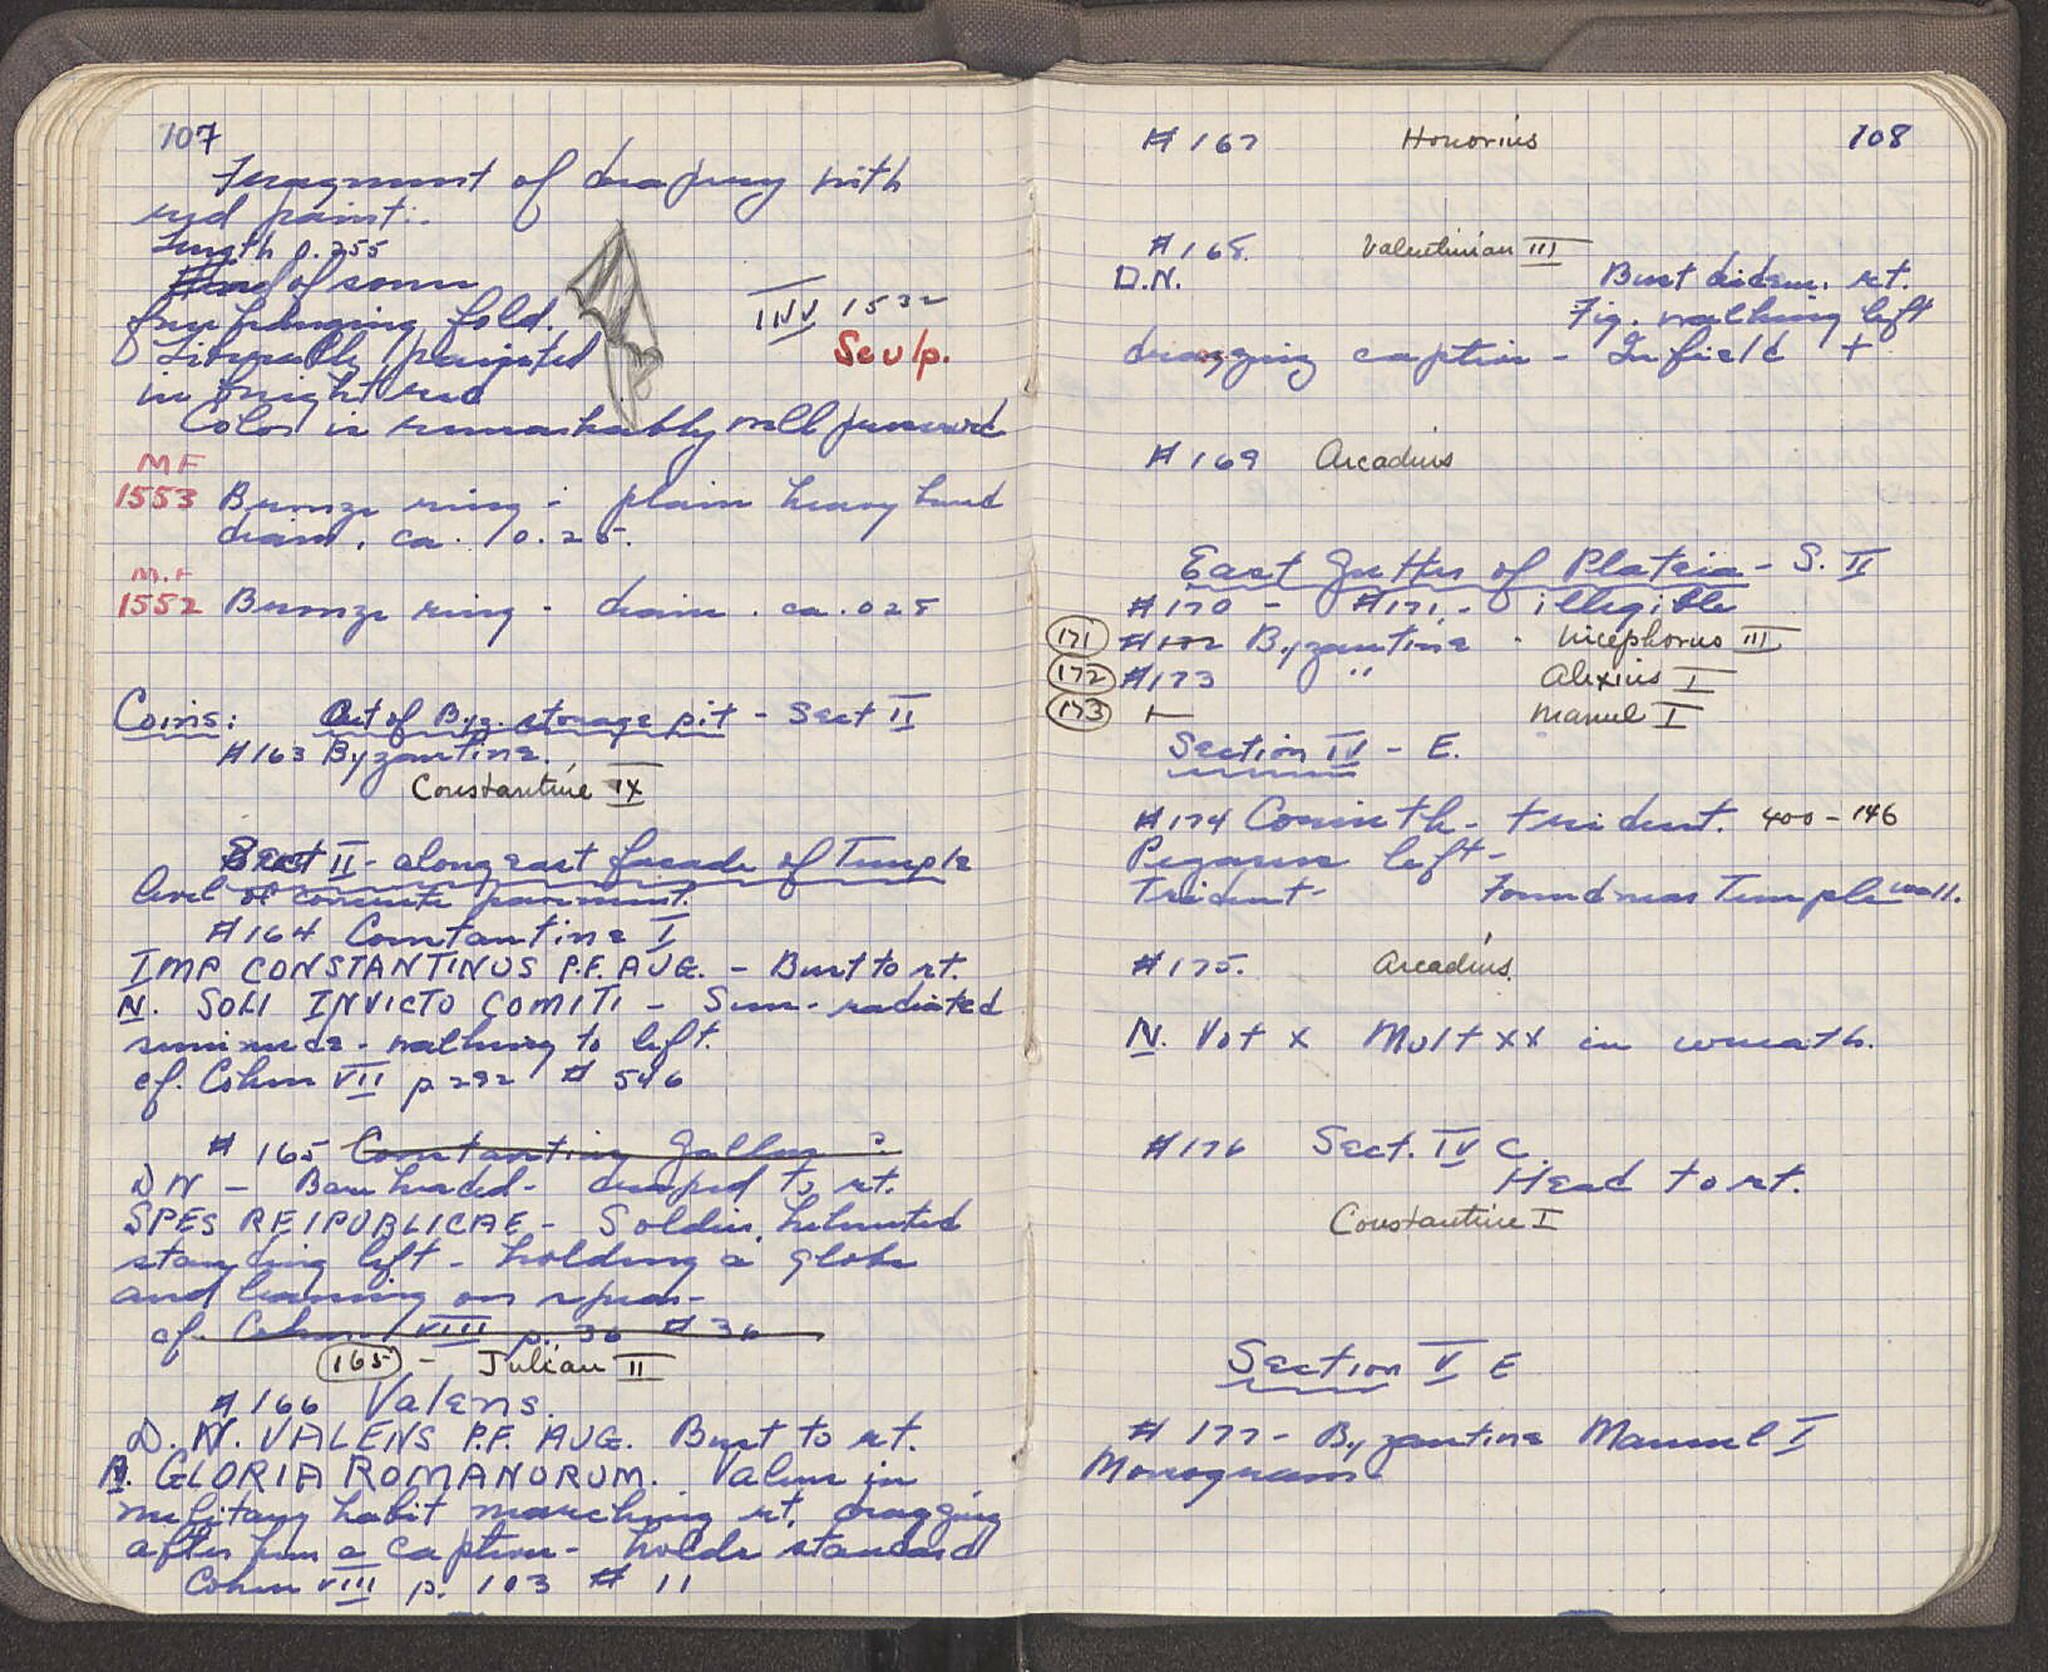 107
Fragment of drapery with
red paint.
Length 0.255
End of some
free hanging fold.
Liberally painted
in bright red
Color is remarkably well preserved
INV 1532
Sculp.
MF
1553 Bronze ring - plain heavy band
diam. ca. 0.25.
M.F
1552 Bronze ring - diam. ca. 025
Coins: Out of Byz. storage pit - Sect II
#163 Byzantine.
Constantine IX
Sect II - along east facade of Temple
level of concrete pavement.
#164 Constantine I
IMP CONSTANTINUS P.F. AUG. - Bust to rt.
R. SOLI INVICTO COMITI - Sun - radiated
seminude - walking to left.
cf. Cohen VII p 292 # 546
# 165 Constantius Gallus ?
DN - Bare headed - draped to rt.
SPES REIPUBLICAE - Soldier, helmeted
standing left - holding a globe
and leaning on spear -
cf. Cohen VIII p. 36 # 36
165 - Julian II
# 166 Valens.
D. N. VALENS P.F. AUG. Bust to rt.
R. GLORIA ROMANORUM. Valens in
military habit marching rt. dragging
after him a captive - holds standard
Cohen VIII p. 103 # 11
108
# 167 Honorius
# 168. Valentinian III
D.N. Bust diadem. rt.
Fig. walking left
dragging captive - In field +
# 169 Arcadius
East Gutter of Plateia - S. II
#170 - #171 - illegible
171 #172 Byzantine - Nicephorus III
172 #173 " Alexius I
173 Manuel I
Section IV - E.
#174 Corinth - trident. 400 - 146
Pegasus left -
Trident - Found near Temple wall.
#175. Arcadius.
R. Vot X Mult XX in wreath.
#176 Sect. IV C.
Head to rt.
Constantine I
Section V E
# 177 - Byzantine Manuel I
Monogram